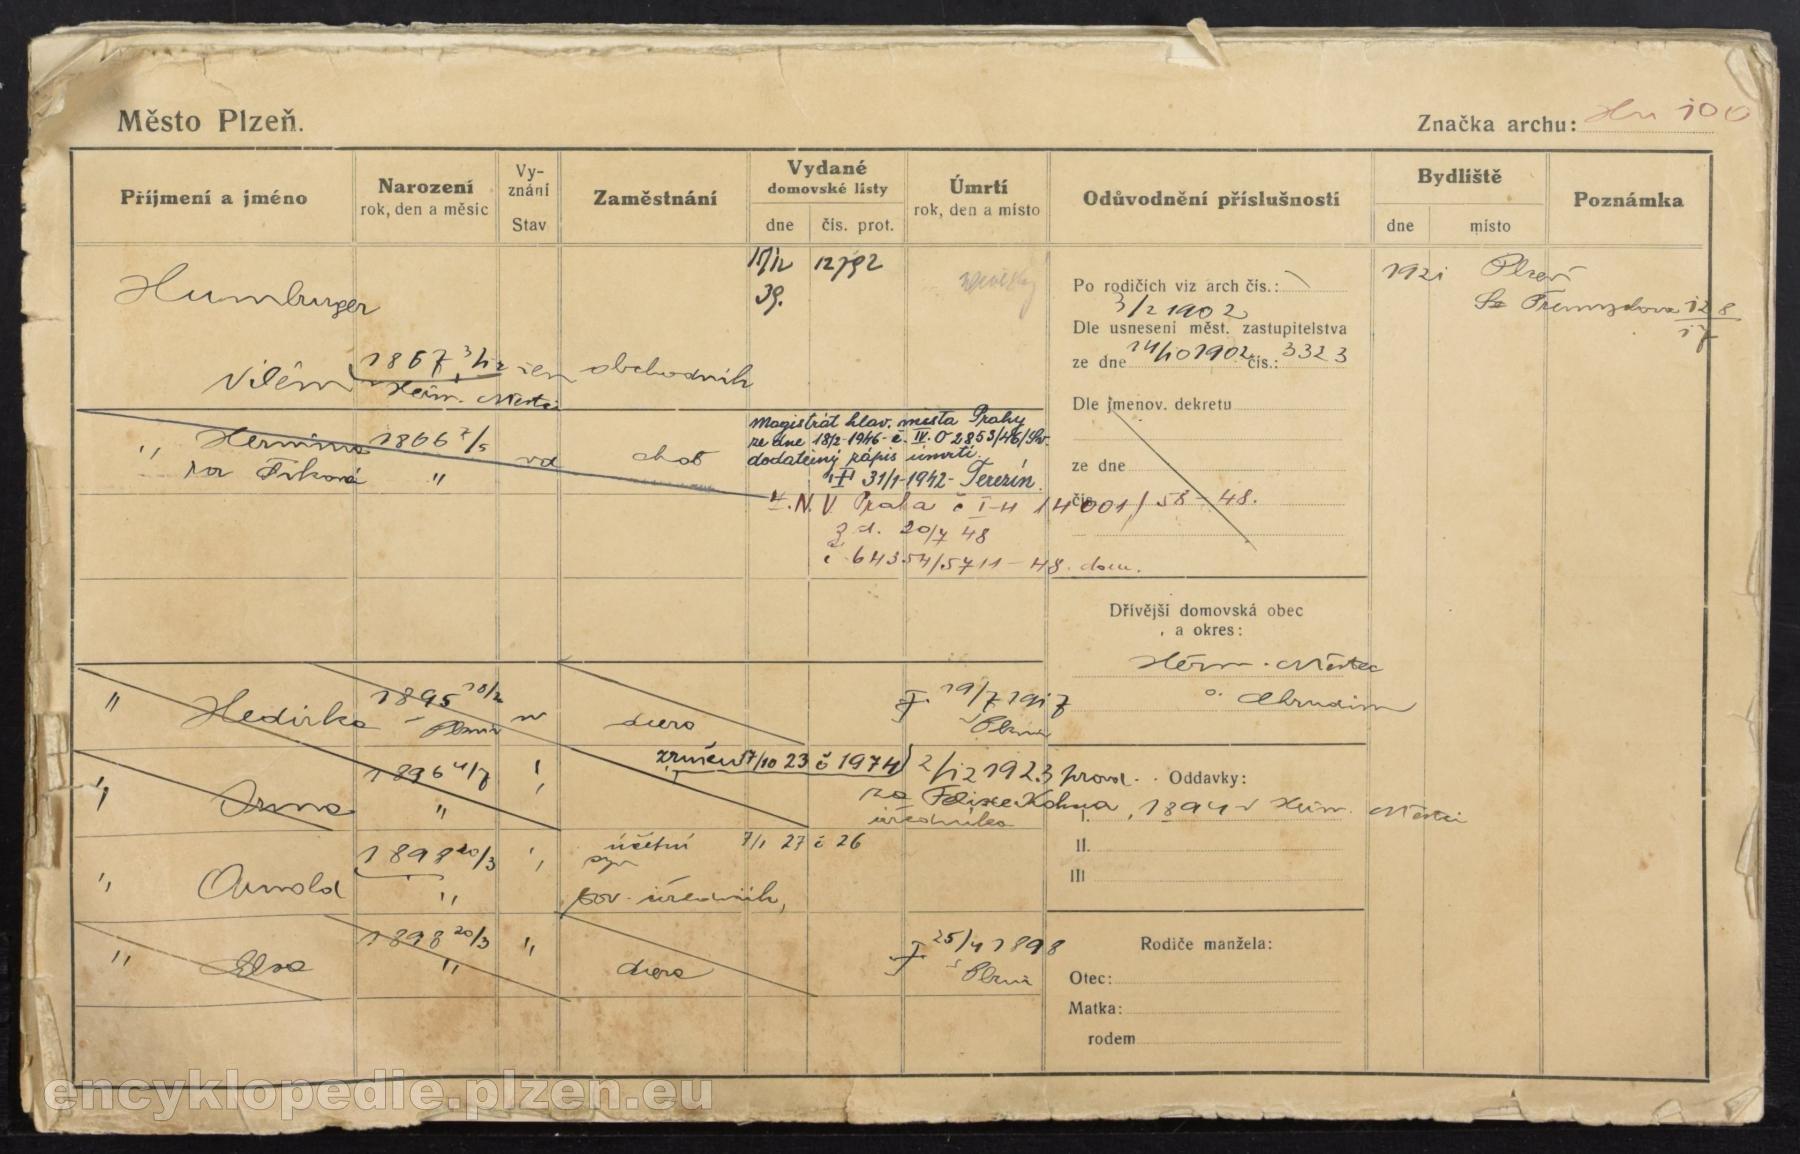 Město Plzeň.
Značka archu: Hu 100
Příjmení a jméno
Narození
rok, den a měsíc
Vy-
znání
Stav
Zaměstnání
Vydané
domovské listy
dne
čís. prot.
Úmrtí
rok, den a místo
Odůvodnění příslušnosti
Bydliště
dne
místo
Poznámka
Humburger
Vilém
1867 3/12
Heřm. Městec
žen
obchodník
15/12
39.
12792
Po rodičích viz arch čís.:
3/2 1902
Dle usnesení měst. zastupitelstva
ze dne 14/10 1902 čís.: 3323
Dle jmenov. dekretu
ze dne
čís.
1921
Plzeň
Přemyslova 128
17
" Hermina
roz
1866 7/5
"
vd
choť
Magistrát hlav. města Prahy
ze dne 18/2-1946-č. IV. O 2853/46/
dodatečný zápis úmrtí.
31/1-1942-Terezín.
Ú.N.V. Praha č I-H 14001/58-48.
z d. 20/7 48
č 64354/5711-48. dom.
Dřívější domovská obec
a okres:
Heřm. Městec
Chrudim
" Hedvika
1895 18/2
Plzni
dcera
19/7 1917
Plzni
" Irma
1896 4/7
"
"
zrušen 17/10 23 č 1974
2/12 1923 provd.
za Felixe Kohna
úředníka
Oddavky:
I. 1894 v Heřm. Městci
II.
III
" Arnold
1898 20/3
"
"
účetní
7/1 27 č 26
syn
sov. úředník,
" Elsa
1898 20/3
"
"
dcera
25/4 1898
Plzni
Rodiče manžela:
Otec:
Matka:
rodem
encyklopedie.plzen.eu